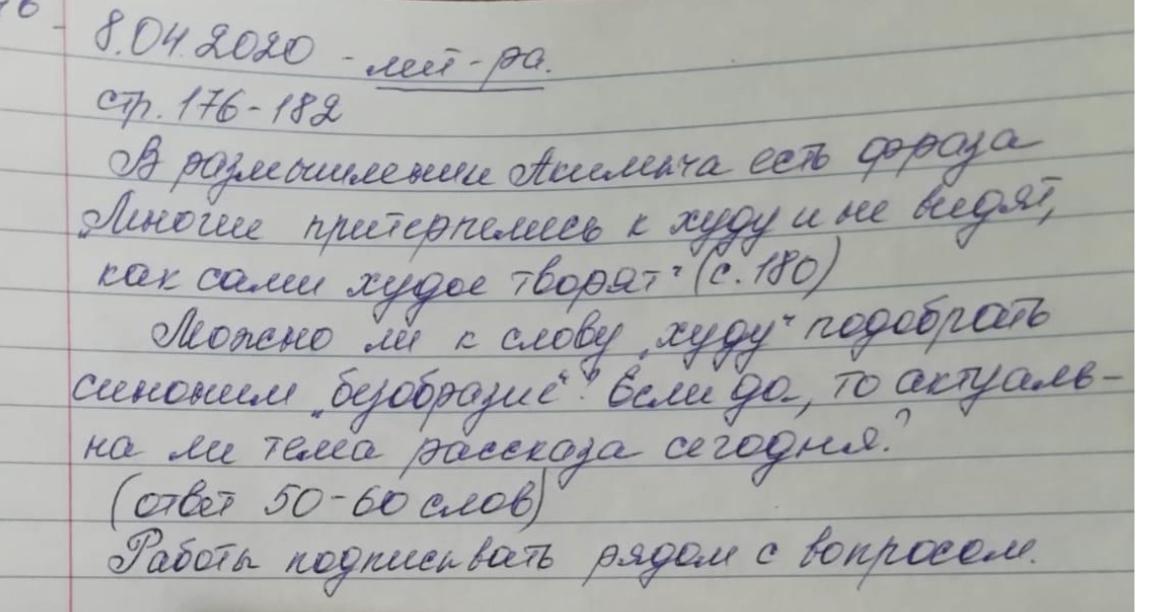 8.04.2020 - лит-ра.
стр. 176-182
В размышлении Акимыча есть фраза
„Многие притерпелись к худу и не видят,
как сами худое творят" (с. 180)
Можно ли к слову „худу" подобрать
синоним „безобразие"? Если да, то актуаль-
на ли тема рассказа сегодня?
(ответ 50-60 слов)
Работы подписывать рядом с вопросом.